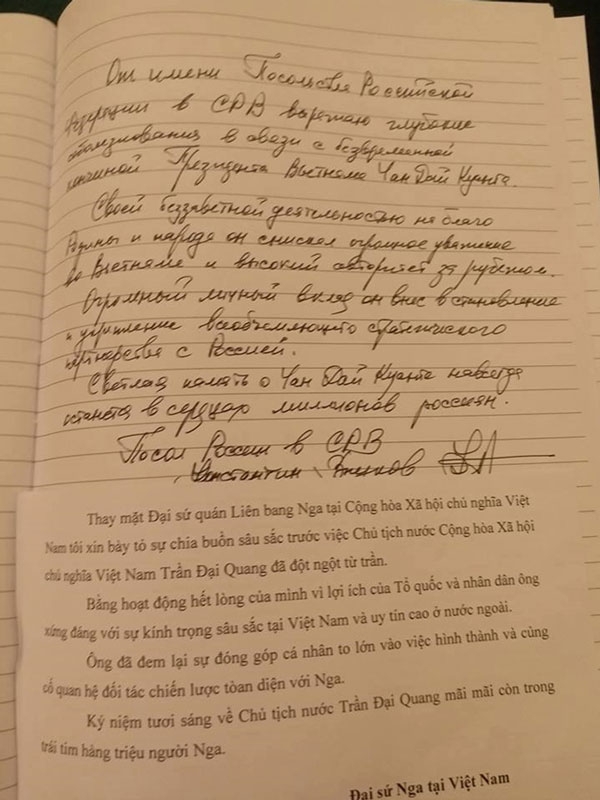 От имени Посольства Российской
Федерации в СРВ выражаю глубокие
соболезнования в связи с безвременной
кончиной Президента Вьетнама Чан Дай Куанга.
Своей беззаветной деятельностью на благо
Родины и народа он снискал огромное уважение
во Вьетнаме и высокий авторитет за рубежом.
Огромный личный вклад он внес в становление
и укрепление всеобъемлющего стратегического
партнерства с Россией.
Светлая память о Чан Дай Куанге навсегда
останется в сердцах миллионов россиян.
Посол России в СРВ
Константин Внуков
Thay mặt Đại sứ quán Liên bang Nga tại Cộng hòa Xã hội chủ nghĩa Việt
Nam tôi xin bày tỏ sự chia buồn sâu sắc trước việc Chủ tịch nước Cộng hòa Xã hội
chủ nghĩa Việt Nam Trần Đại Quang đã đột ngột từ trần.
Bằng hoạt động hết lòng của mình vì lợi ích của Tổ quốc và nhân dân ông
xứng đáng với sự kính trọng sâu sắc tại Việt Nam và uy tín cao ở nước ngoài.
Ông đã đem lại sự đóng góp cá nhân to lớn vào việc hình thành và củng
cố quan hệ đối tác chiến lược tòan diện với Nga.
Kỷ niệm tươi sáng về Chủ tịch nước Trần Đại Quang mãi mãi còn trong
trái tim hàng triệu người Nga.
Đại sứ Nga tại Việt Nam